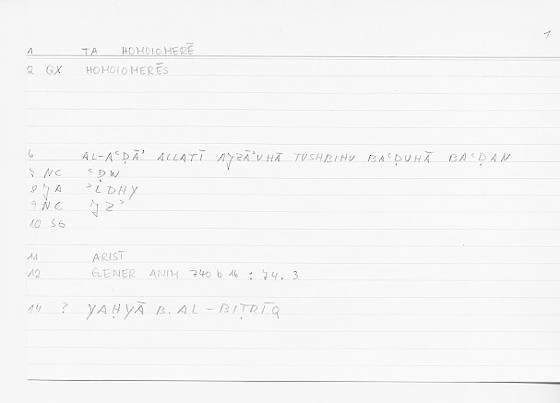 1
1 TA HOMOIOMERĒ
2 QX HOMOIOMERĒS
6 AL-AʿḌĀʾ ALLATĪ AJZĀʾUHĀ TUSHBIHU BAʿḌUHĀ BAʿḌAN
7 NC ʿḌW
8 JA ʾLDHY
9 NC JZʾ
10 SG
11 ARIST
12 GENER ANIM 740 b 16 : 74. 3
14 ? YAḤYĀ B. AL-BIṬRĪQ